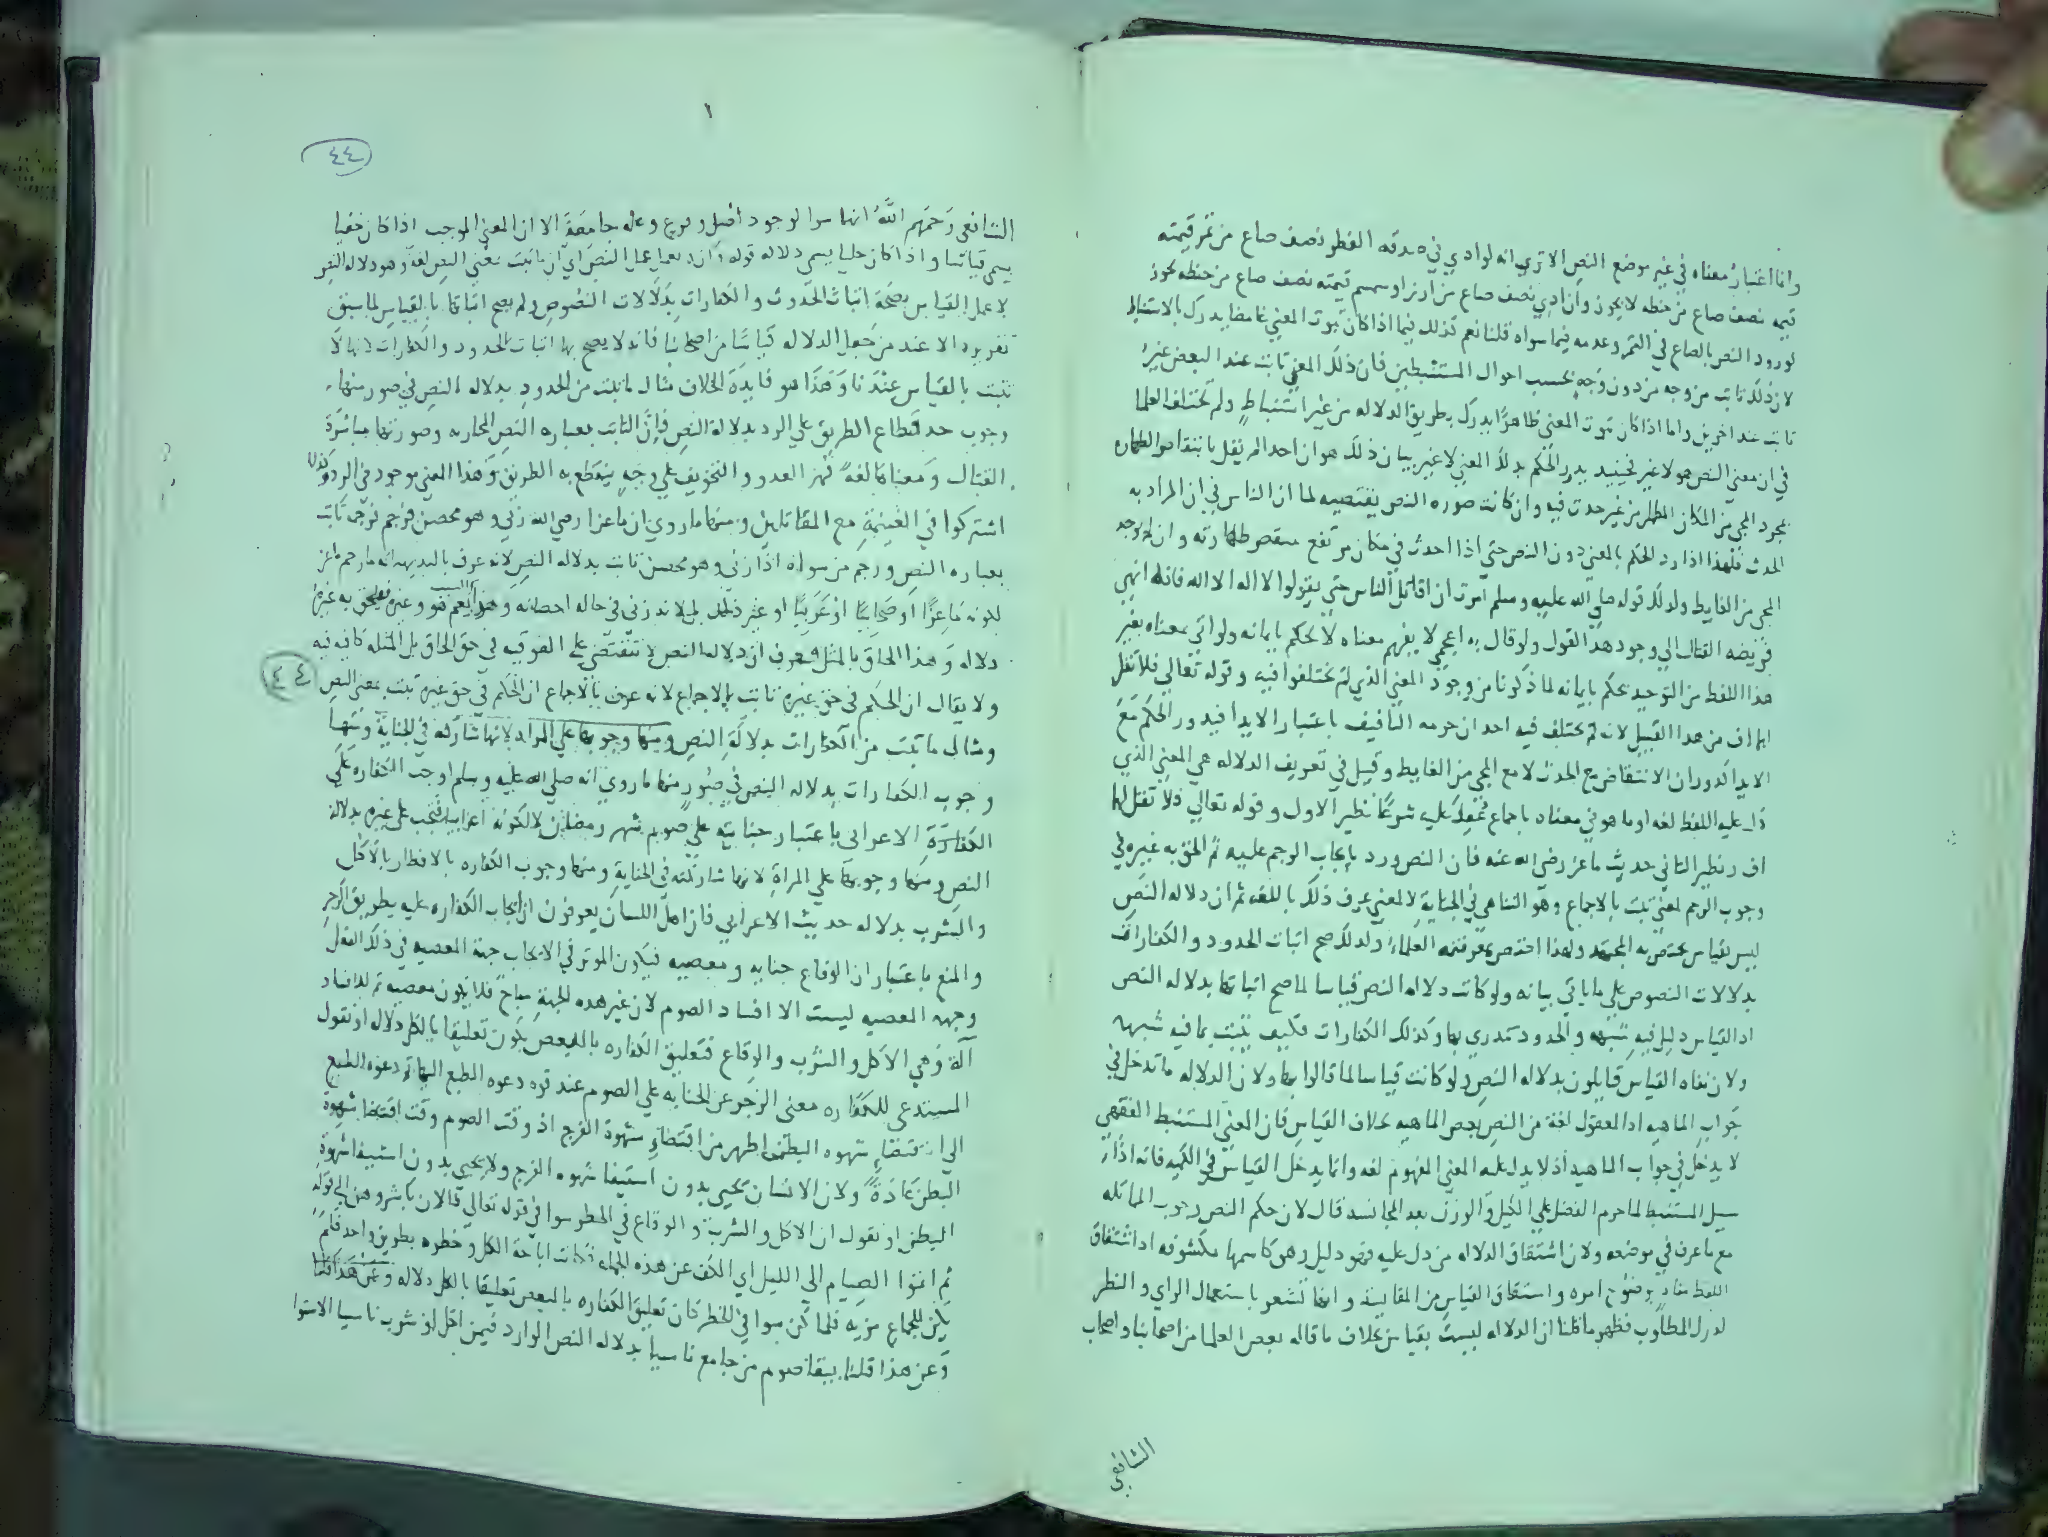 وانما اعتبار معناه في غير موضع النص الا تري انه لو ادي في صدقه الفطر نصف صاع من تمر قيمته
قيمه نصف صاع من حنطه لا يجوز وان ادي نصف صاع من ارز او سمسم قيمته نصف صاع من حنطه يجوز
لورود النص بالصاع في التمر وعدمه فيما سواه قلنا نعم كذلك فيما اذا كان ثبوت المعني غامضا يدرك بالاستنباط
لان ذلك ثابت من وجه من دون وجه بحسب احوال المستنبطين فان ذلك المعني ثابت عند البعض غير
ثابت عند اخرين واما اذا كان ثبوت المعني ظاهرا يدرك بطريق الدلاله من غير استنباط ولم تختلف العلما
في ان معني النص هو لا غير فحينيد يدور الحكم بذلك المعني لا غير بيان ذلك هو ان احدا لم يقل بانتقاض الطهاره
بمجرد المجي من المكان المطهر من غير حدث فيه وان كانت صوره النص يقتضيه لما ان الناس في ان المراد به
الحدث فلهذا ادار الحكم بالمعني دون النص حتي اذا احدث في مكان مرتفع ينتقض طهارته وان لم يوجد
المجي من الغايط وكذلك قوله صلي الله عليه وسلم امرت ان اقاتل الناس حتي يقولوا لا اله الا الله فانه انهي
فريضه القتال الي وجود هذا القول ولو قال به اعجمي لا يفهم معناه لا يحكم بايمانه ولو اتي بمعناه بغير
هذا اللفظ من التوحيد يحكم بايمانه لما ذكرنا من وجود المعني الذي لم يختلفوا فيه وقوله تعالي فلا تقل
لهما اف من هذا القبيل لانه لم يختلف فيه احد ان حرمه التافيف باعتبار الايذا فيدور الحكم مع
الايذا كدوران الانتقاض مع الحدث لا مع المجي من الغايط وقيل في تعريف الدلاله هي المعني الذي
دل عليه اللفظ لغه او ما هو في معناه باجماع منعقد عليه شرعا نظير الاول وقوله تعالي فلا تقل لهما
اف ونظير الثاني حديث ماعز رضي الله عنه فان النص ورد بايجاب الرجم عليه ثم الحق به غيره في
وجوب الرجم لمعني ثبت بالاجماع وهو التناهي في الجناية لا لمعني عرف ذلك باللغه ثم ان دلاله النص
ليس بقياس يختص به المجتهد ولهذا اختص بمعرفته العلماء ولذلك صح اثبات الحدود والكفارات
بدلالات النصوص علي ما ياتي بيانه ولو كانت دلاله النص قياسا لما صح اثباتها بدلاله النص
اذ القياس دليل فيه شبهه والحدود تندري بها وكذلك الكفارات فكيف يثبت بما فيه شبهه
ولان نفاه القياس قايلون بدلاله النص ولو كانت قياسا لما قالوا بها ولان الدلاله ما تدخل في
جواب الماهيه اذ المعقول لغة من النص بعض الماهيه بخلاف القياس فان المعني المستنبط الفقهي
لا يدخل في جواب الماهيه اذ لا يدل عليه المعني المفهوم لغه وانما يدخل القياس في الكميه فانه اذا
سيل المستنبط لما حرم الفضل علي الكيل والوزن بعد المجانسه قال لان حكم النص وجوب المماثله
مع ما عرف في موضعه ولان اشتقاق الدلاله من دل عليه فهو دليل وهو كاسمها مكشوفه اذ اشتقاق
اللفظ بوضوح امره واشتقاق القياس من المقايسة وانها تشعر باستعمال الراي والنظر
لدرك المطلوب فظهر ما قلنا ان الدلاله ليست بقياس بخلاف ما قاله بعض العلما من اصحابنا واصحاب
الشافعي
٤٤
الشافعي رحمهم الله انها سوا لوجود اصل وفرع وعله جامعة الا ان المعني الموجب اذا كان خفيا
يسمي قياسا واذا كان جليا يسمي دلاله قوله وانه يعمل عمل النص اي ان ما ثبت بمعني النص لغة وهو دلاله النص
لا عمل القياس بصحة اثبات الحدود والكفارات بدلالات النصوص ولم يصح اثباتها بالقياس لما سبق
تقريره الا عند من جعل الدلاله قياسا من اصحابنا فانه لا يصح بها اثبات الحدود والكفارات لانها لا
تثبت بالقياس عندنا وهذا هو فايدة الخلاف مثال ما ثبت من الحدود بدلاله النص في صور منها
وجوب حد قطاع الطريق علي الردء بدلالة النص فان الثابت بعباره النص المحاربه وصورتها مباشرة
القتال ومعناها لغة قهر العدو والتخويف علي وجه ينقطع به الطريق وهذا المعني موجود في الردء ولذا
اشتركوا في الغنيمة مع المقاتلين ومنها ما روي ان ماعزا رضي الله زني وهو محصن فرجم فرجمه ثابت
بعباره النص ورجم من سواه اذا زني وهو محصن ثابت بدلاله النص لانه عرف بالبديهه انه ما رجم ماعز
لكونه ماعزا او صحابيا او عربيا او غير ذلك بل لانه زني في حاله احصانه وغيره فيلحق به غيره
دلاله وهذا الحاق بالمثل فيعرف ان دلاله النص لا تقتضي علي الفوقيه في حق الحاق بل المثله كافيه فيه
٤٤
ولا يقال ان الحكم في حق غيره ثابت بالاجماع لانه عرف بالاجماع ان الحكم في حق غيره ثبت بمعني النص
ومثال ما ثبت من الكفارات بدلالة النص ومنها وجوبها علي المراه لانها شاركته في الجناية ومنها
وجوب الكفارات بدلاله النص في صور منها ما روي انه صلي الله عليه وسلم اوجب الكفاره علي
الكفارة الاعرابي باعتبار جنايته علي صوم شهر رمضان لا لكونه اعرابيا فتجب علي غيره بدلاله
النص ومنها وجوبها علي المراة لانها شاركته في الجناية ومنها وجوب الكفاره بالافطار بالاكل
والشرب بدلاله حديث الاعرابي فان اهل اللسان يعرفون ان ايجاب الكفاره عليه بطريق الزجر
والمنع باعتبار ان الوقاع جنايه ومعصيه فيكون الموثر في الايجاب جهة المعصيه في ذلك الفعل
وجهه المعصيه ليست الا افساد الصوم لان غير هذه الجهة مباح فلا يكون معصيه ثم للافساد
آلة وهي الاكل والشرب والوقاع فتعليق الكفاره بالبعض يكون تعليقا بالكل دلاله او نقول
المستدعي للكفاره معني الزجر عن الجنايه علي الصوم عند قوه دعوه الطبع اليها ودعوه الطبع
الي اقتضاء شهوه البطن اظهر من اقتضاء شهوة الفرج اذ وقت الصوم وقت اقتضا شهوة
البطن عادة ولان الانسان يحيي بدون استيفا شهوه الفرج ولا يحيي بدون استيفا شهوة
البطن او نقول ان الاكل والشرب والوقاع في الحظر سوا في قوله تعالي فالان باشروهن الي قوله
ثم اتموا الصيام الي الليل اي الكف عن هذه الجمله فكانت اباحة الكل وحظره بطريق واحد فلم
يكن للجماع مزيه فلما كن سوا في الحظر كان تعليق الكفاره بالبعض تعليقا بالكل دلاله وعن هذا قلنا
وعن هذا قلنا ببقا صوم من جامع ناسيا بدلاله النص الوارد فيمن اكل او شرب ناسيا الاستوا